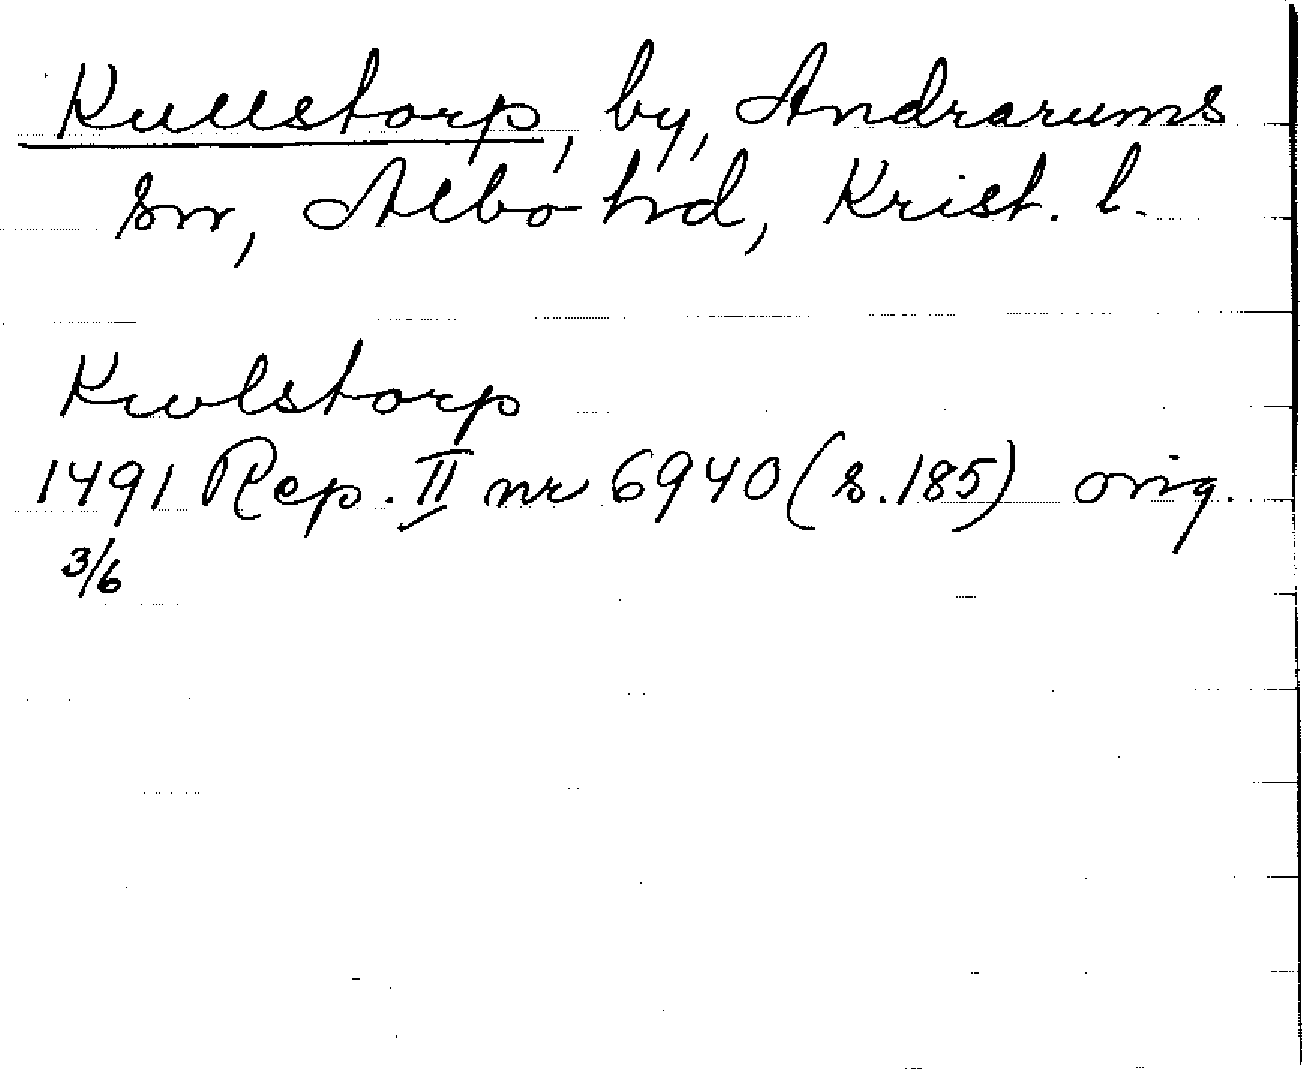 Kullstorp, by, Andrarums
sn, Albo hd, Krist. l.
Kwlstorp
1491 Rep. II nr 6940 (s. 185) orig.
3/6